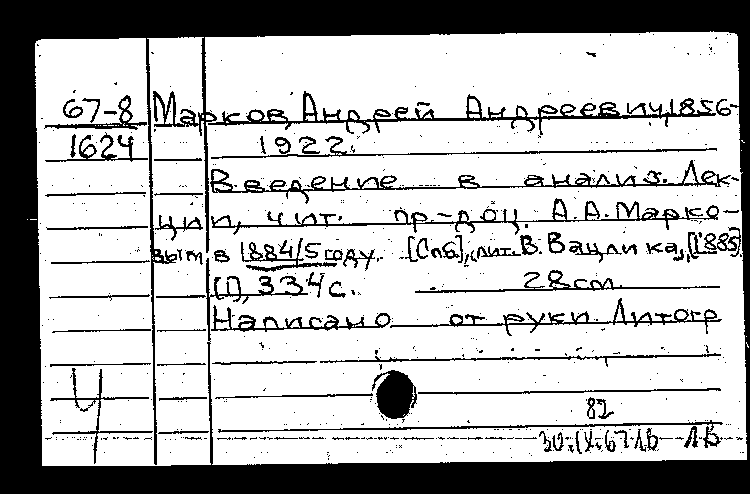 67-8 Марков, Андрей Андреевич, 1856-
1624 1922.
Введение в анализ. Лек-
ции, чит. пр-доц. А.А. Марко-
вым в 1884/5 году. [Спб], лит. В. Вацлика, [1885]
[1], 334 с. 28 см.
Написано от руки. Литогр
Ч
82
30.IX.67 ЛВ ЛВ